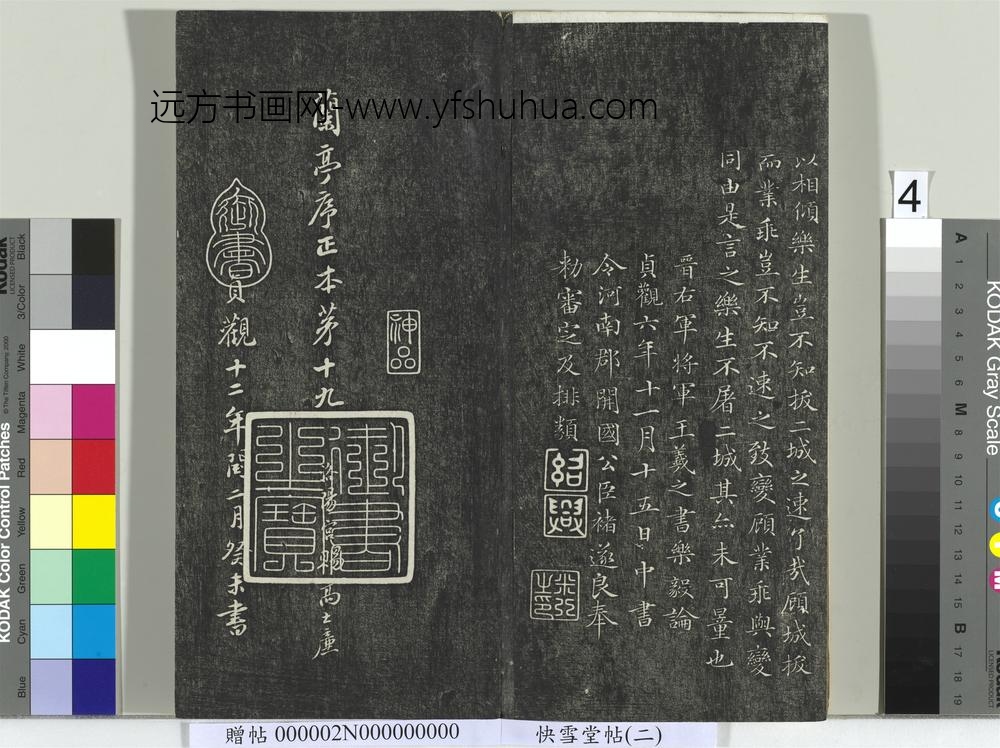 远方书画网-www.yfshuhua.com
以相傾樂生豈不知拔二城之速了哉顧城拔
而業乖豈不知不速之致變顧業乖與變
同由是言之樂生不屠二城其亦未可量也
晉右軍將軍王羲之書樂毅論
貞觀六年十一月十五日中書
令河南郡開國公臣褚遂良奉
勅審定及排類
紹興
神品
蘭亭序正本第十九
洛陽宮賜高士廉
御書之寶
御書
貞觀十二年閏二月癸未書
4
KODAK Gray Scale
A 1 2 3 4 5 6 M 8 9 10 11 12 13 14 15 B 17 18 19
Kodak
LICENSED PRODUCT
KODAK Color Control Patches
© The Tiffen Company, 2000
Blue
Cyan
Green
Yellow
Red
Magenta
White
3/Color
Black
贈帖 000002N000000000
快雪堂帖(二)